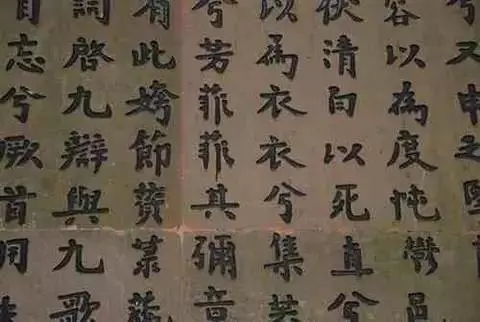 兮又申之
容以為度忳鬱邑
伏清白以死直兮
以為衣衣兮集芙
兮芳菲菲其彌章
有此姱節薋菉葹
詞啓九辯與九歌
自忘兮厥首用